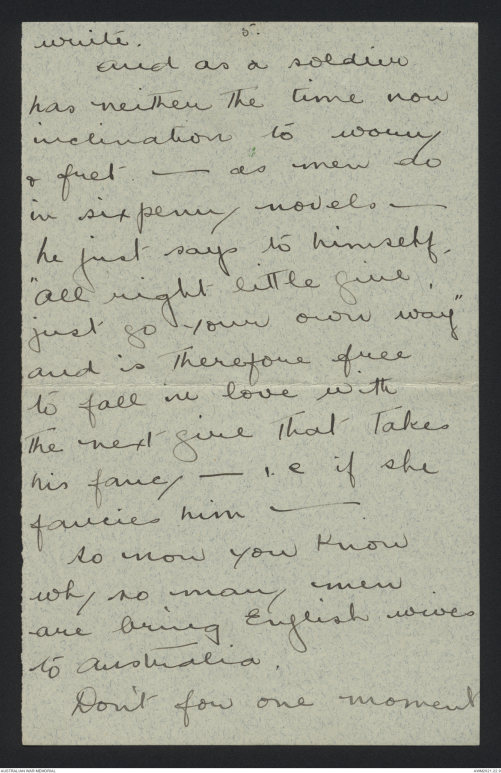 5.
write.
and as a soldier
has neither the time nor
inclination to worry
& fret — as men do
in sixpenny novels —
he just says to himself,
"All right little girl,
just go your own way"
and is therefore free
to fall in love with
the next girl that takes
his fancy — i.e if she
fancies him —
So now you know
why so many men
are bring English wives
to Australia.
Don't for one moment
AUSTRALIAN WAR MEMORIAL